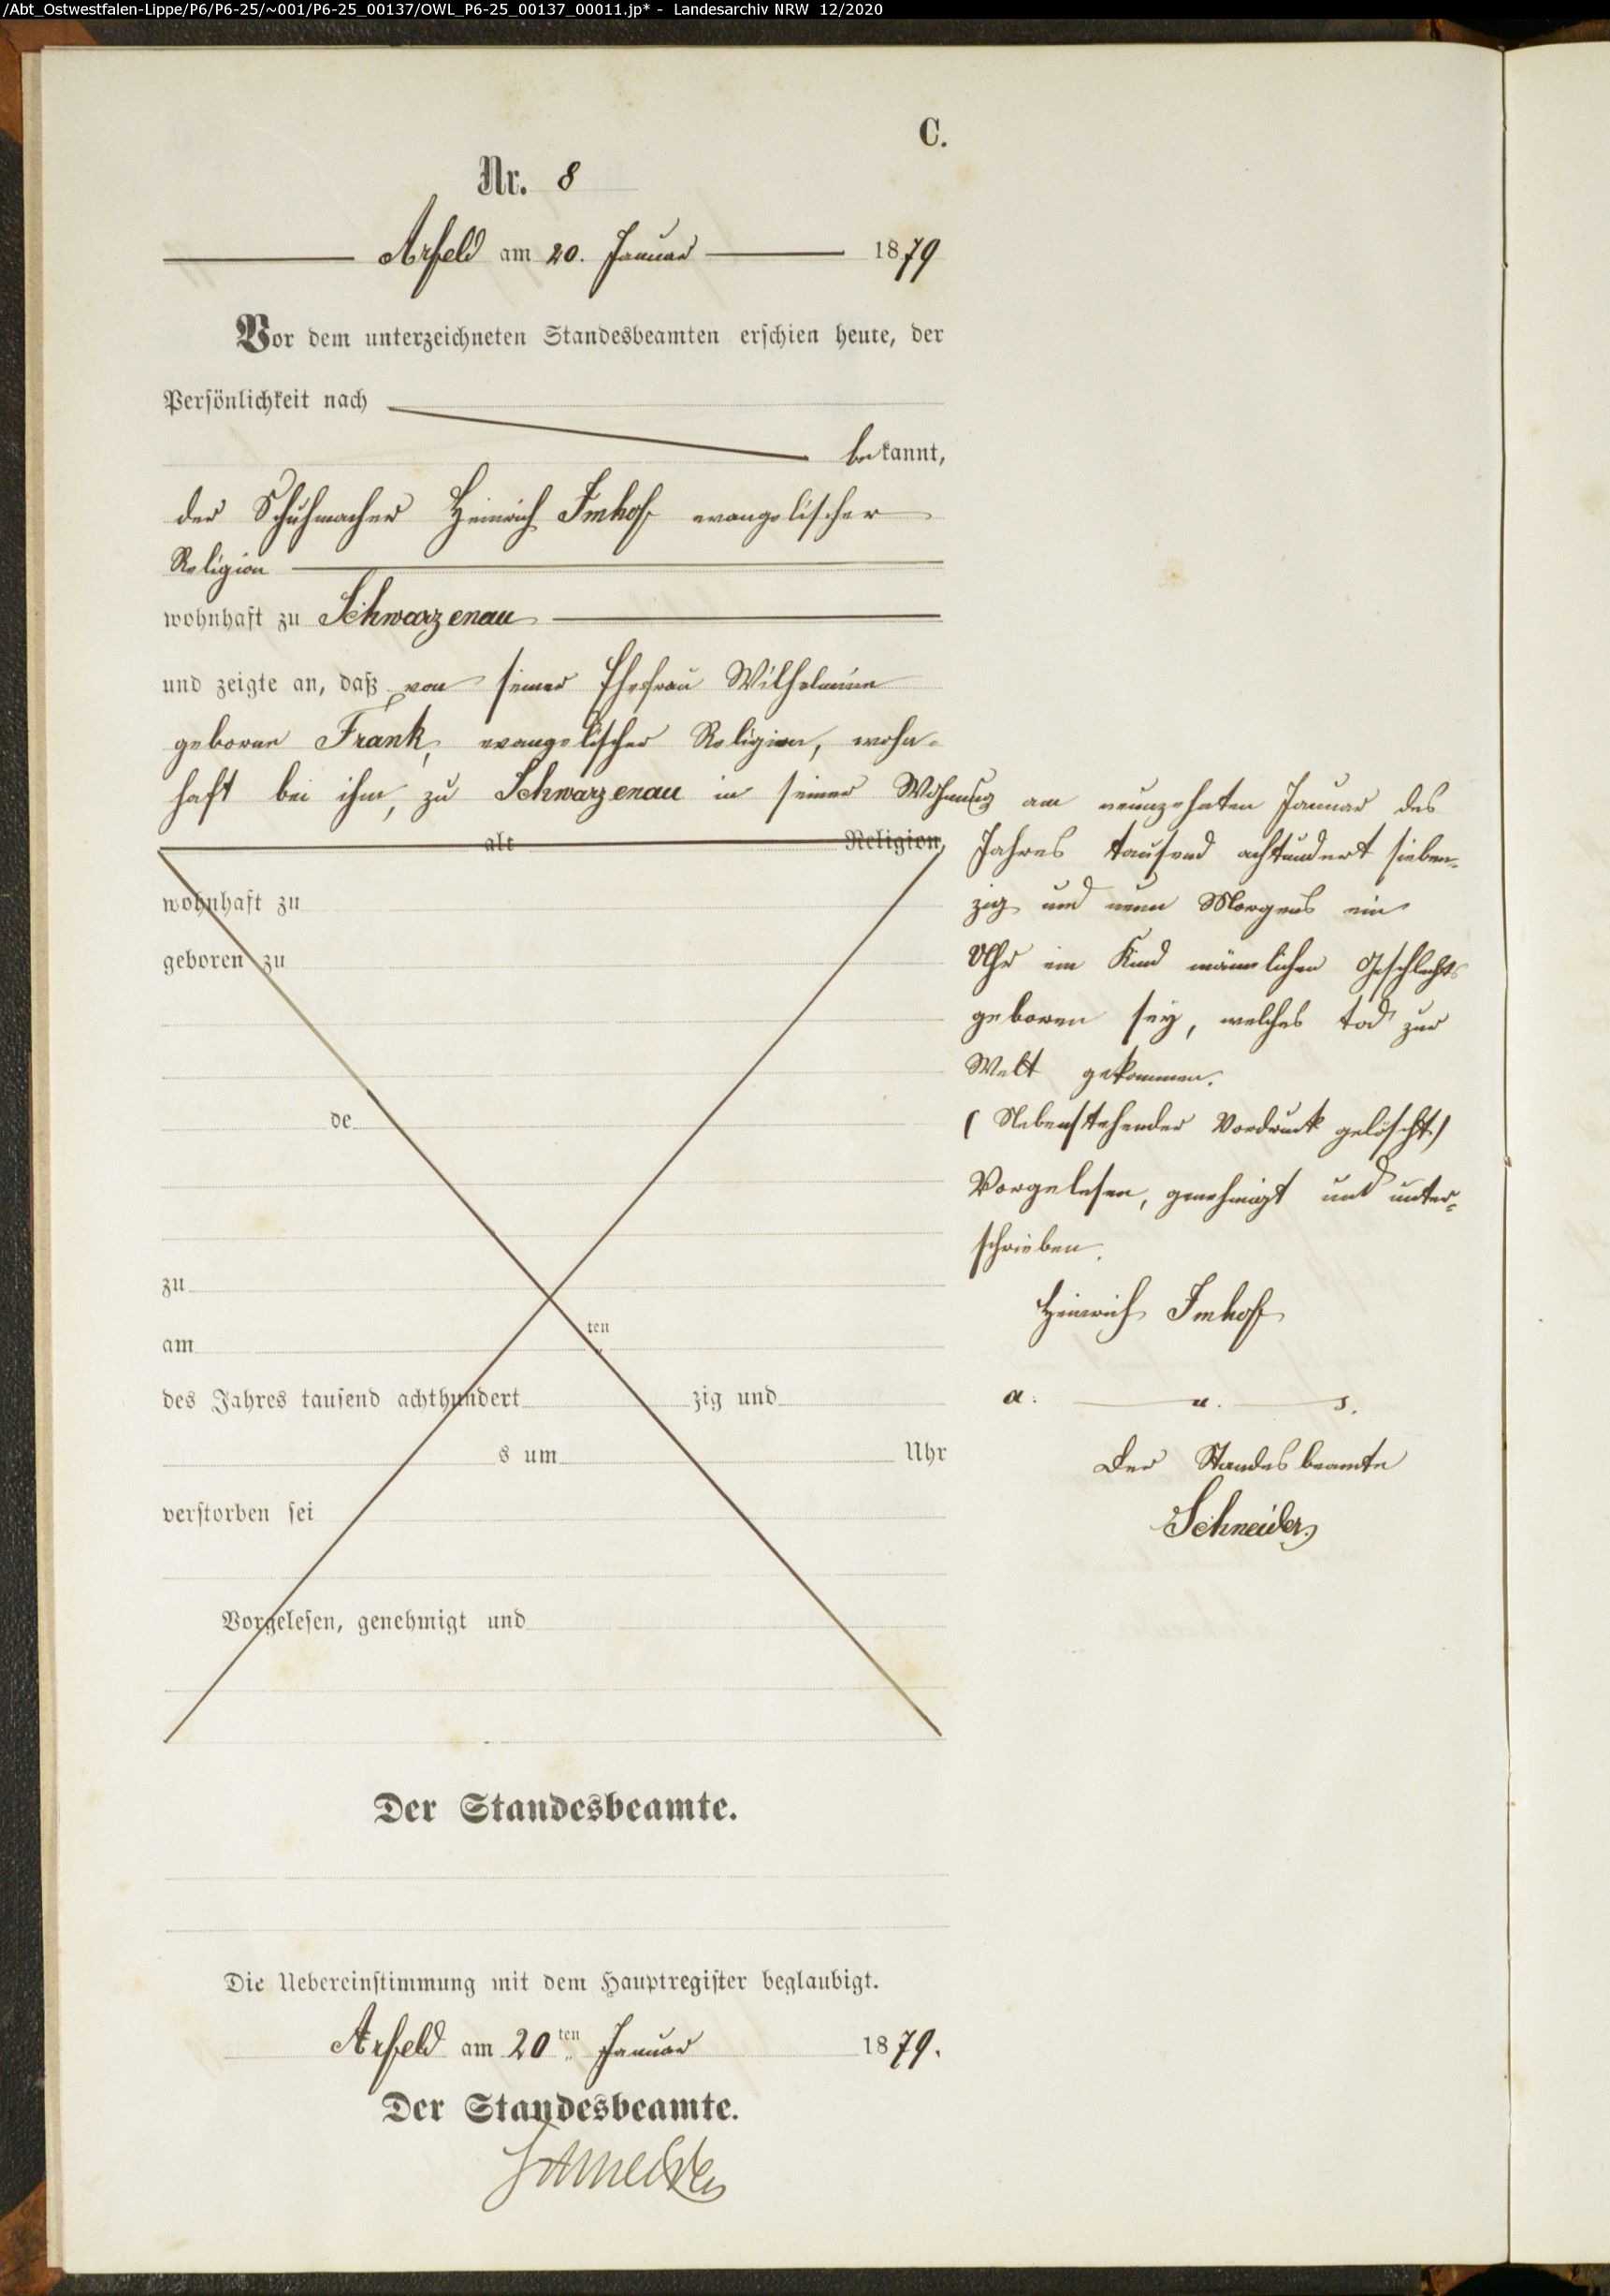 /Abt_Ostwestfalen-Lippe/P6/P6-25/~001/P6-25_00137/OWL_P6-25_00137_00011.jp* - Landesarchiv NRW 12/2020
C.
Nr. 8
Arfeld am 20. Januar 1879
Vor dem unterzeichneten Standesbeamten erschien heute, der
Persönlichkeit nach
bekannt,
der Schuhmacher Heinrich Imhof evangelischer
Religion
wohnhaft zu Schwarzenau
und zeigte an, daß von seiner Ehefrau Wilhelmine
geborne Frank, evangelischer Religion, wohn-
haft bei ihm, zu Schwarzenau in seiner Wohnung am neunzehnten Januar des
Jahres tausend achtundert sieben-
zig und neun Morgens ein
Uhr ein Kind männlichen Geschlechts
geboren sey, welches tod zur
Welt gekommen.
(Nebenstehender Vordruck gelöscht)
Vorgelesen, genehmigt und unter-
schrieben.
Heinrich Imhof
a. u. s.
Der Standesbeamte
Schneider
alt Religion,
wohnhaft zu
geboren zu
de
zu
am ten
des Jahres tausend achthundert zig und
s um Uhr
verstorben sei
Vorgelesen, genehmigt und
Der Standesbeamte.
Die Uebereinstimmung mit dem Hauptregister beglaubigt.
Arfeld am 20ten Januar 1879.
Der Standesbeamte.
Schneider